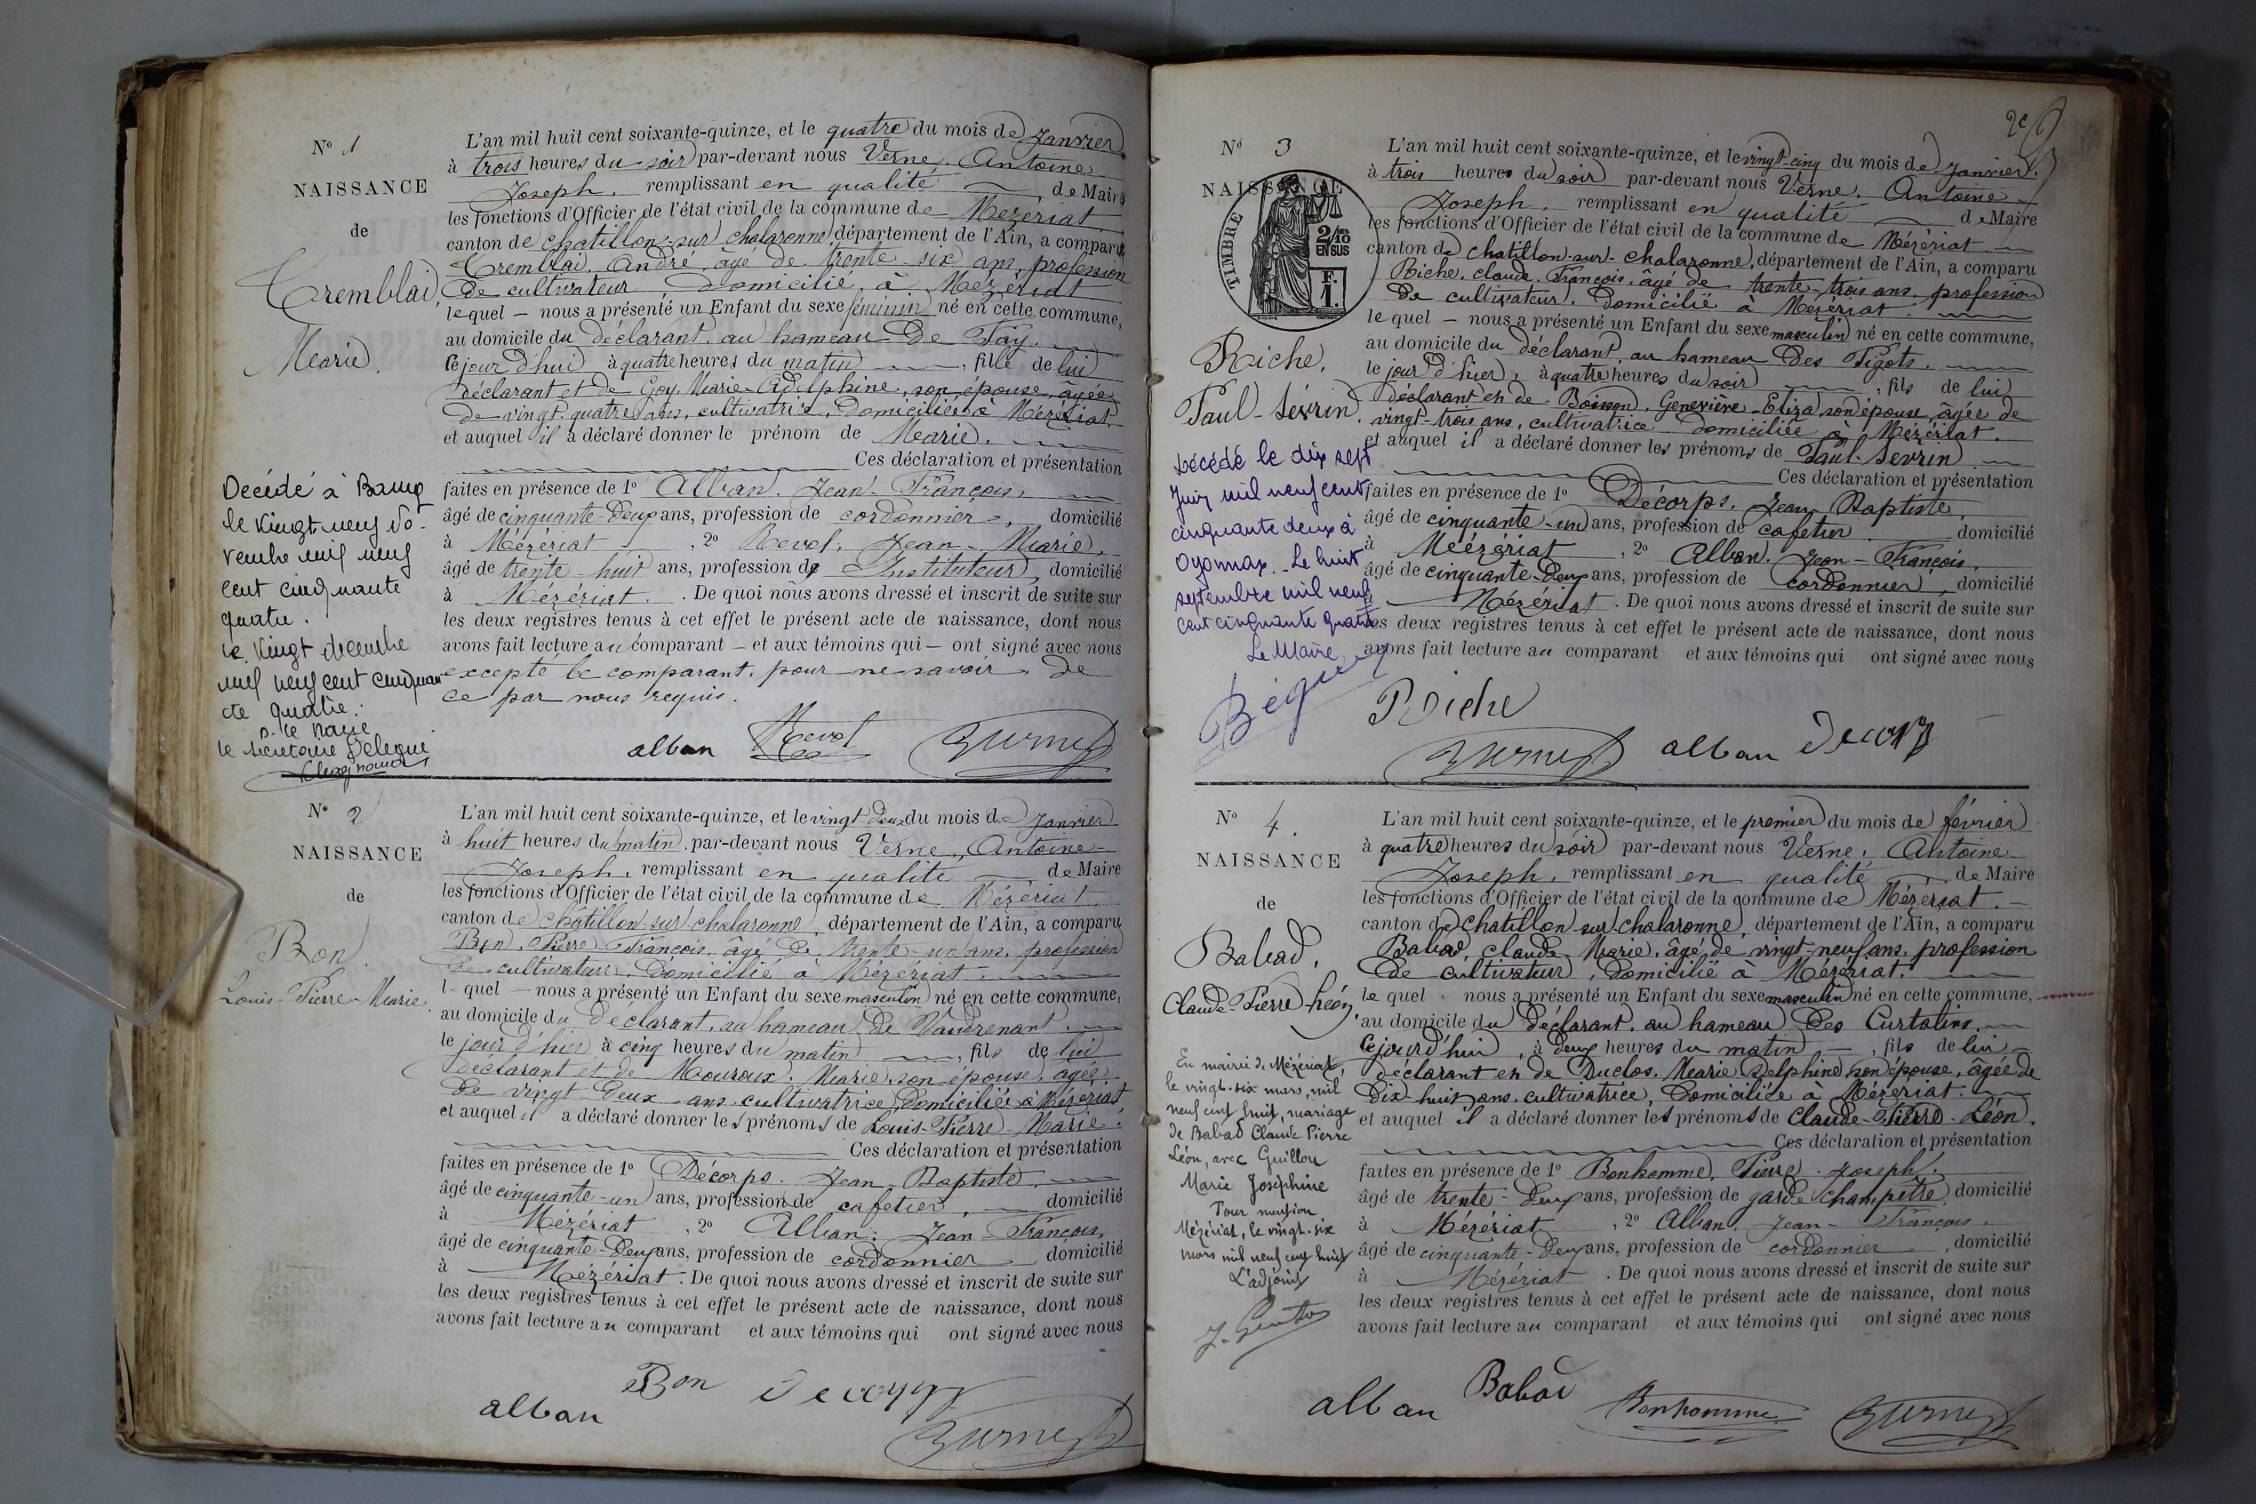 Nº 1
NAISSANCE
de
Tremblai,
Marie.
L'an mil huit cent soixante-quinze, et le quatre du mois de Janvier
à trois heures du soir par-devant nous Verne, Antoine
Joseph, remplissant en qualité de Maire
les fonctions d'Officier de l'état civil de la commune de Mézériat
canton de chatillon-sur-chalaronne, département de l'Ain, a comparu
Tremblai, André, âgé de trente-six ans, profession
de cultivateur Domicilié à Mézériat
lequel — nous a présenté un Enfant du sexe féminin né en cette commune,
au domicile du déclarant, au hameau de Fay.
ce jour d'hui à quatre heures du matin, fille de lui
déclarant et de Goy, Marie-Adelphine, son épouse, âgée
de vingt-quatre ans, cultivatrice, Domiciliée à Mézériat
et auquel il a déclaré donner le prénom de Marie.
Ces déclaration et présentation
faites en présence de 1º Alban, Jean-François,
âgé de cinquante-deux ans, profession de cordonnier, domicilié
à Mézériat, 2º Revol, Jean-Marie,
âgé de trente-huit ans, profession de Instituteur, domicilié
à Mézériat. De quoi nous avons dressé et inscrit de suite sur
les deux registres tenus à cet effet le présent acte de naissance, dont nous
avons fait lecture au comparant — et aux témoins qui — ont signé avec nous
excepté le comparant, pour ne savoir de
ce par nous requis.
alban Revol
Décédé à Bourg
le vingt neuf no-
vembre mil neuf
cent cinquante
quatre.
le vingt décembre
mil neuf cent cinquan
te quatre.
P. le Maire
le secrétaire Délégué
Nº 2
NAISSANCE
de
Bon
Louis-Pierre-Marie.
L'an mil huit cent soixante-quinze, et le vingt deux du mois de Janvier
à huit heures du matin, par-devant nous Verne, Antoine
Joseph, remplissant en qualité de Maire
les fonctions d'Officier de l'état civil de la commune de Mézériat
canton de chatillon-sur-chalaronne, département de l'Ain, a comparu
Bon, Pierre-François, âgé de trente-un ans, profession
de cultivateur, Domicilié à Mézériat
lequel — nous a présenté un Enfant du sexe masculin né en cette commune,
au domicile du déclarant, au hameau de Vaudrenant.
le jour d'hier à cinq heures du matin, fils de lui
déclarant et de Mouroux, Marie, son épouse, âgée
de vingt-deux ans, cultivatrice, Domiciliée à Mézériat
et auquel il a déclaré donner les prénoms de Louis-Pierre-Marie.
Ces déclaration et présentation
faites en présence de 1º Décorps, Jean-Baptiste,
âgé de cinquante-un ans, profession de cafetier, domicilié
à Mézériat, 2º Alban, Jean-François,
âgé de cinquante-deux ans, profession de cordonnier domicilié
à Mézériat. De quoi nous avons dressé et inscrit de suite sur
les deux registres tenus à cet effet le présent acte de naissance, dont nous
avons fait lecture au comparant et aux témoins qui ont signé avec nous
alban Bon
Nº 3
NAISSANCE
TIMBRE
2/10
EN SUS
F.
1.
Riche,
Paul-Sévrin.
L'an mil huit cent soixante-quinze, et le vingt-cinq du mois de Janvier.
à trois heures du soir par-devant nous Verne, Antoine
Joseph, remplissant en qualité de Maire
les fonctions d'Officier de l'état civil de la commune de Mézériat
canton de chatillon-sur-chalaronne, département de l'Ain, a comparu
Riche, claude-François, âgé de trente-trois ans, profession
de cultivateur, Domicilié à Mézériat.
lequel — nous a présenté un Enfant du sexe masculin né en cette commune,
au domicile du déclarant, au hameau des Pigots.
le jour d'hier, à quatre heures du soir, fils de lui
déclarant et de Boisson, Geneviève-Eliza, son épouse, âgée de
vingt-trois ans, cultivatrice Domiciliée à Mézériat.
et auquel il a déclaré donner les prénoms de Paul-Sévrin
Ces déclaration et présentation
faites en présence de 1º Décorps, Jean-Baptiste,
âgé de cinquante-un ans, profession de cafetier domicilié
à Mézériat, 2º Alban, Jean-François,
âgé de cinquante-deux ans, profession de cordonnier, domicilié
à Mézériat. De quoi nous avons dressé et inscrit de suite sur
les deux registres tenus à cet effet le présent acte de naissance, dont nous
avons fait lecture au comparant et aux témoins qui ont signé avec nous
Riche
alban
Décédé le dix sept
Juin mil neuf cent
cinquante deux à
Oyonnax. Le huit
septembre mil neuf
cent cinquante quatre
Le Maire,
Nº 4.
NAISSANCE
de
Babad,
Claude-Pierre-Léon,
L'an mil huit cent soixante-quinze, et le premier du mois de février
à quatre heures du soir par-devant nous Verne, Antoine
Joseph, remplissant en qualité de Maire
les fonctions d'Officier de l'état civil de la commune de Mézériat.
canton de chatillon-sur-chalaronne, département de l'Ain, a comparu
Babad, claude-Marie, âgé de vingt-neuf ans, profession
de cultivateur, Domicilié à Mézériat.
lequel nous a présenté un Enfant du sexe masculin né en cette commune,
au domicile du déclarant, au hameau des Curtalins.
ce jourd'hui, à deux heures du matin, fils de lui
déclarant et de Duclos, Marie Delphine son épouse, âgée de
dix-huit ans, cultivatrice, Domiciliée à Mézériat.
et auquel il a déclaré donner les prénoms de Claude-Pierre-Léon.
Ces déclaration et présentation
faites en présence de 1º Bonhomme, Pierre-Joseph,
âgé de trente-deux ans, profession de garde champêtre, domicilié
à Mézériat, 2º Alban, Jean-François,
âgé de cinquante-deux ans, profession de cordonnier, domicilié
à Mézériat. De quoi nous avons dressé et inscrit de suite sur
les deux registres tenus à cet effet le présent acte de naissance, dont nous
avons fait lecture au comparant et aux témoins qui ont signé avec nous
alban Babad Bonhomme
En mairie de Mézériat,
le vingt-six mars, mil
neuf cent huit, mariage
de Babad Claude Pierre
Léon, avec Guillon
Marie Joséphine
Pour mention
Mézériat, le vingt-six
mars mil neuf cent huit
L'adjoint